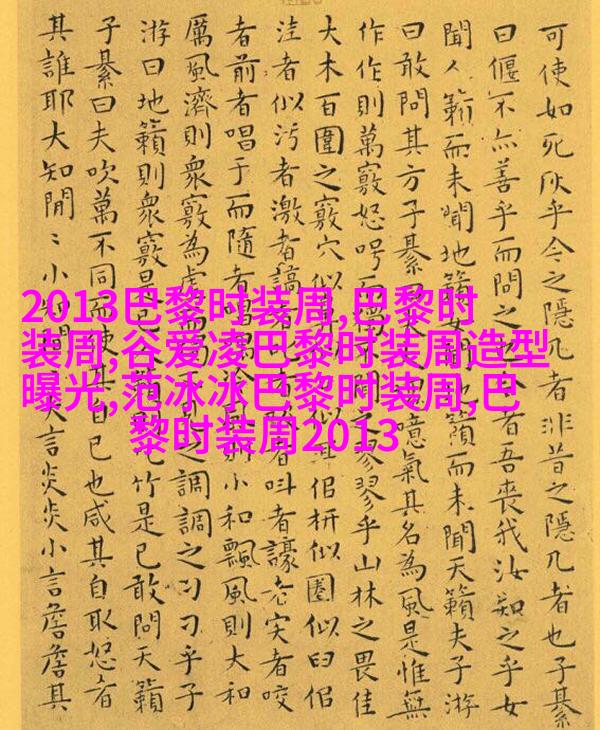 2013巴黎时装周,巴黎时
装周,谷爱凌巴黎时装周造型
曝光,范冰冰巴黎时装周,巴
黎时装周2013
可使如死灰乎今之隱几者非昔之隱几者也子綦
曰偃不亦善乎而問之也今者吾喪我汝知之乎女
聞人籟而未聞地籟女聞地籟而未聞天籟夫子游
曰敢問其方子綦曰夫噫氣其名為風是惟無
作作則萬竅怒呺而獨不之翏翏乎山林之畏佳
大木百圍之竅穴似鼻似枅似圈似臼佀
洼者似污者激者謞者叫者譹者宎者咬
者前者唱于而隨者唱喁泠風則小和飄風則大和
厲風濟則衆竅為虛而之調調之刁刁乎子
游曰地籟則衆竅是竹是已敢問天籟
子綦曰夫吹萬不同而使其自已也咸其自取怒者
其誰耶大知閒〻小知閒大言炎炎小言詹詹其